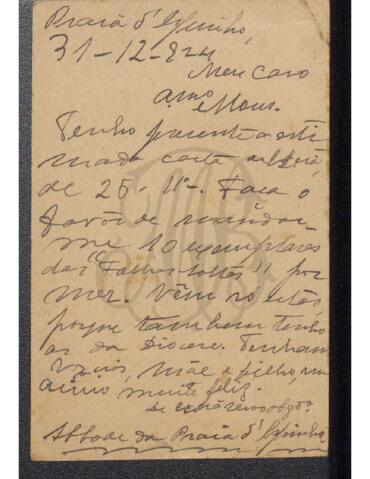 Praia d'Espinho,
31-12-924
Meu Caro
Amo e Monr.
Tenho presente a esti
mada carta
de 25-11º-. Faça o
favôr de mandar-
me 10 exemplares
das "Folhas soltas" por
mez. Vêm só estas,
porque tambem tenho
as da Diocese. Tenham
Vzinos, Mãe e filho, um
anno muito feliz.
De
Abbade da Praia d'Espinho,